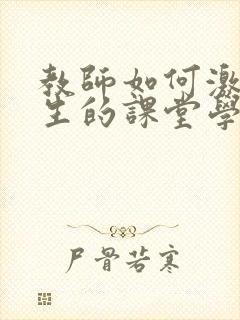 教師如何激
生的課堂學
尸骨若寒